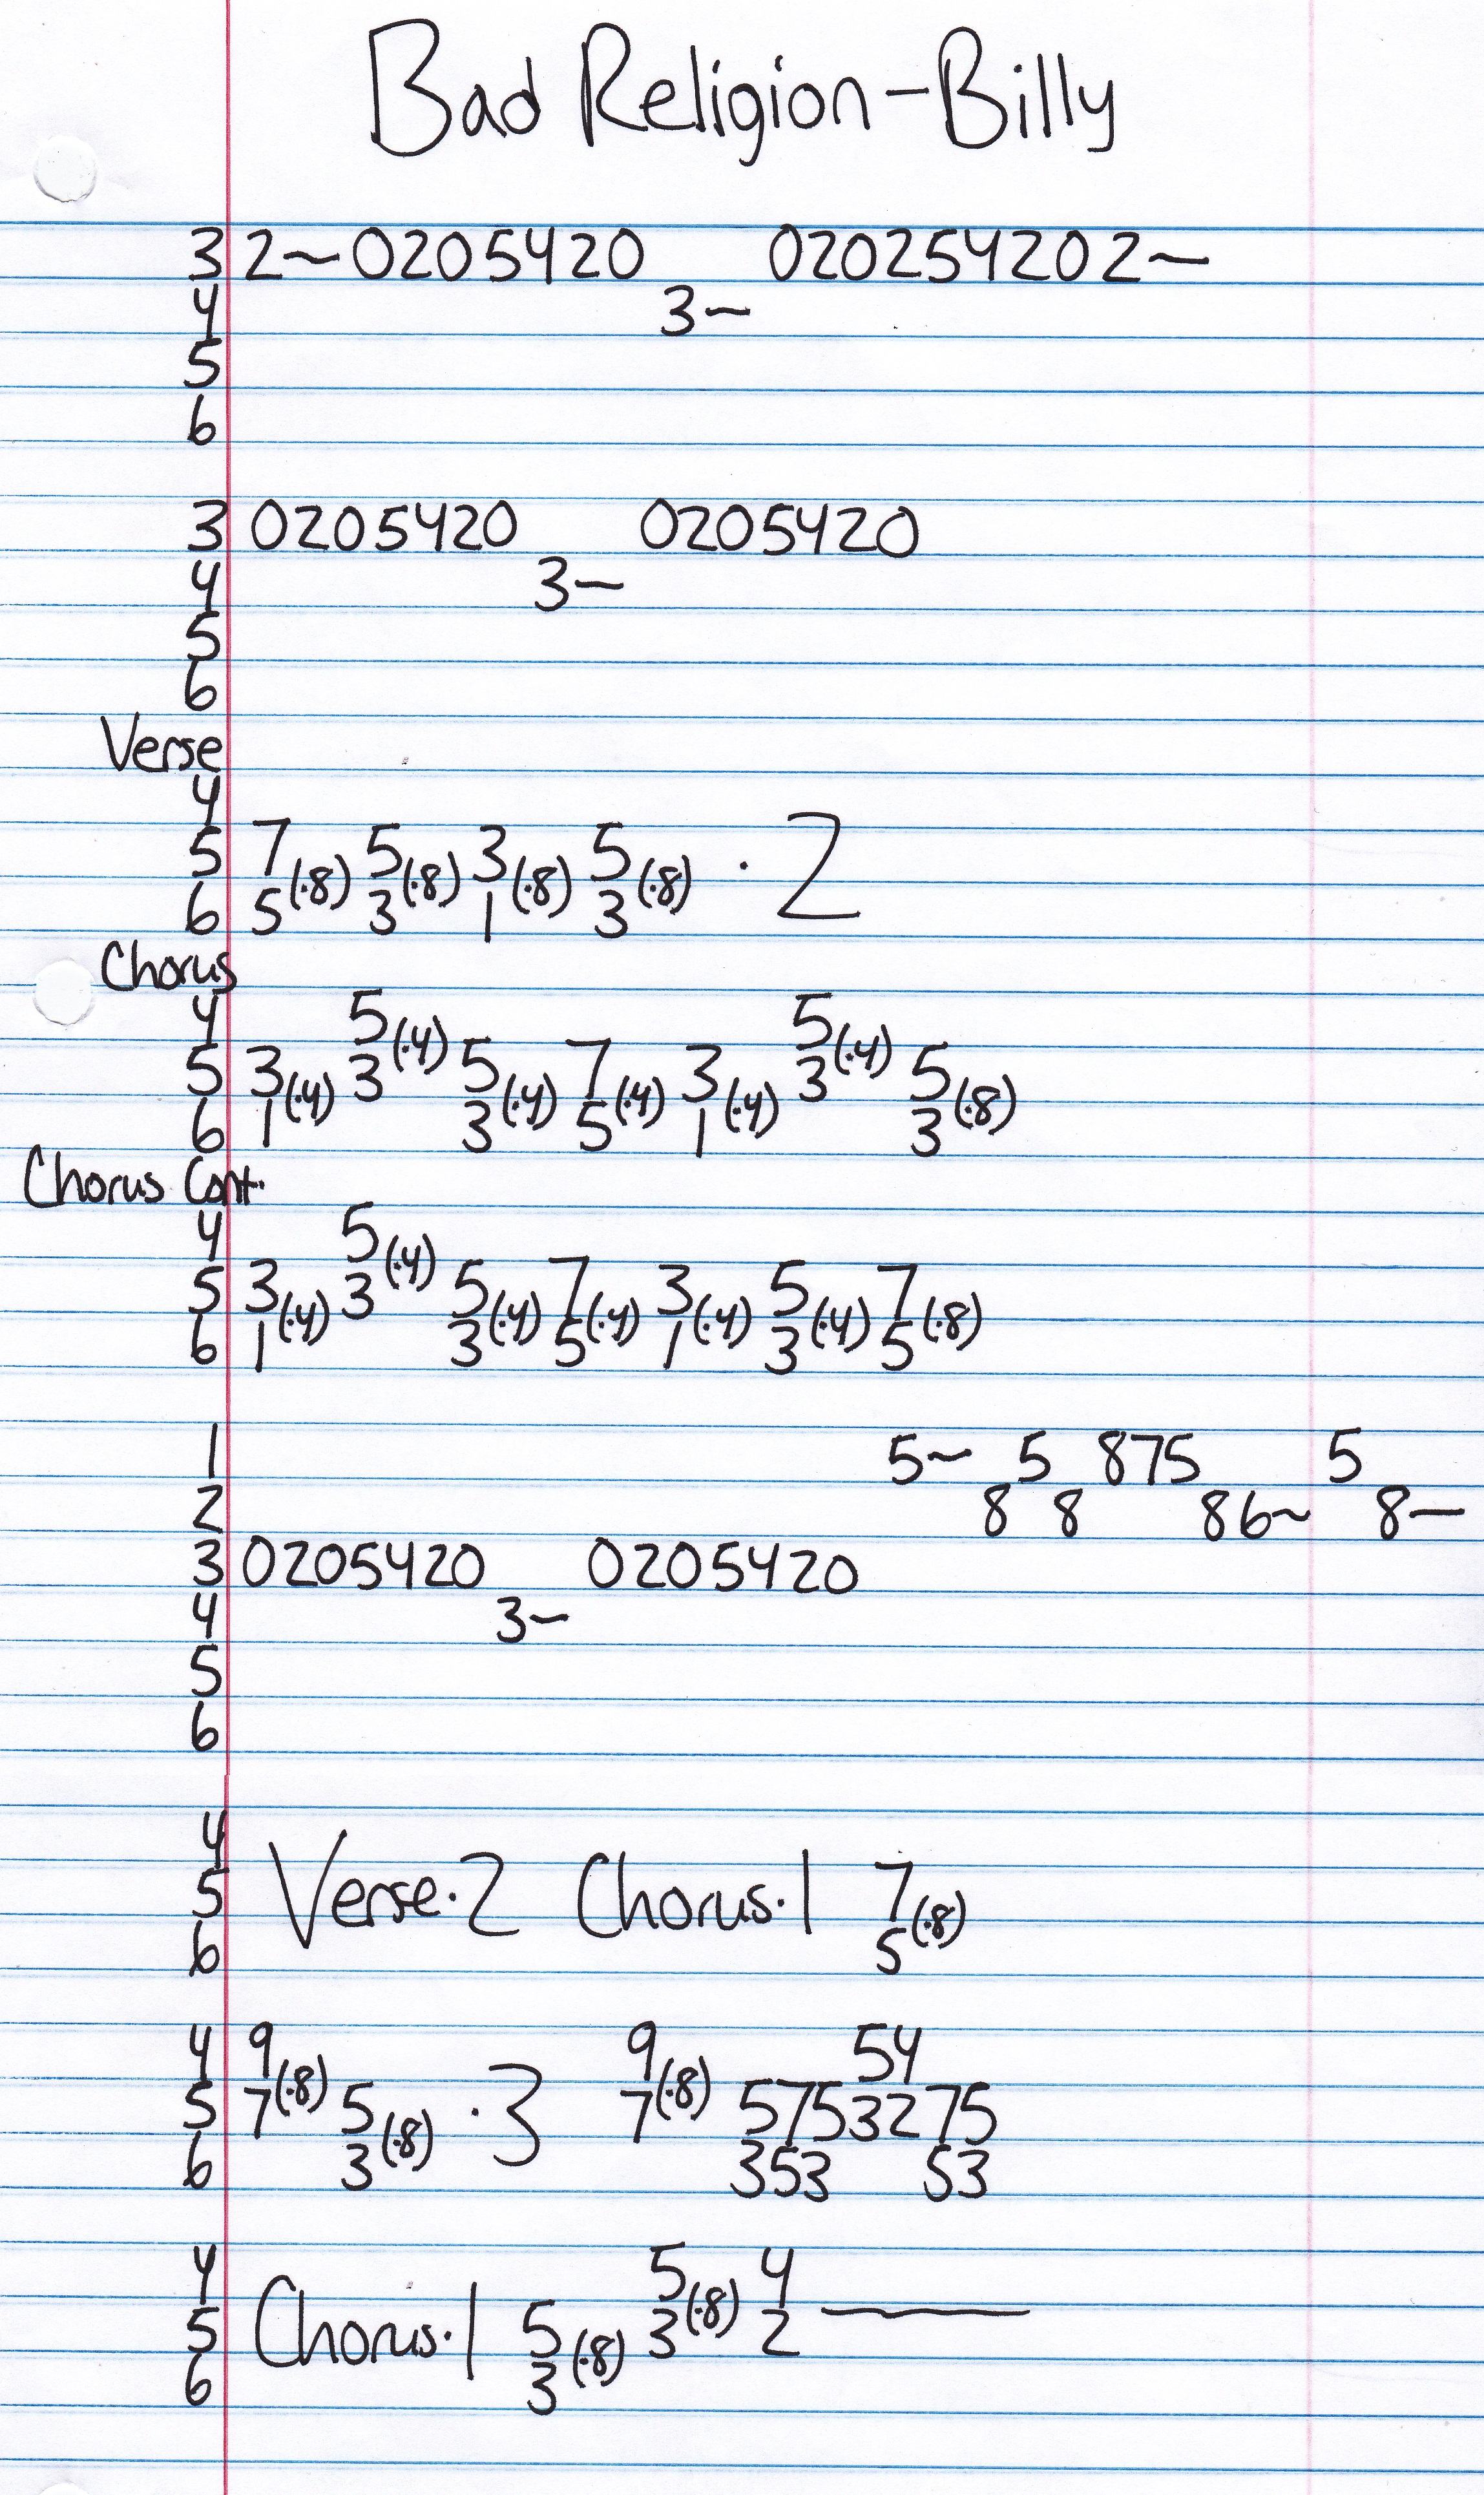 Bad Religion-Billy
3 2~0205420 020254202~
4 3~
5
6
3 0205420 0205420
4 3~
5
6
Verse
4
5 7(·8) 5(·8) 3(·8) 5(·8) ·2
6 5 3 1 3
Chorus
4 5(·4) 5(·4)
5 3(·4) 3 5(·4) 7(·4) 3(·4) 3 5(·8)
6 1 3 5 1 3
Chorus Cont.
4 5(·4)
5 3(·4) 3 5(·4) 7(·4) 3(·4) 5(·4) 7(·8)
6 1 3 5 1 3 5
1 5~ 5 875 5
2 8 8 86~ 8—
3 0205420 0205420
4 3~
5
6
4
5 Verse·2 Chorus·1 7(·8)
6 5
4 9 9 54
5 7(·8) 5(·8) ·3 7(·8) 5753275
6 3 353 53
4 5(·8) 4
5 Chorus·1 5(·8) 3 2 —
6 3